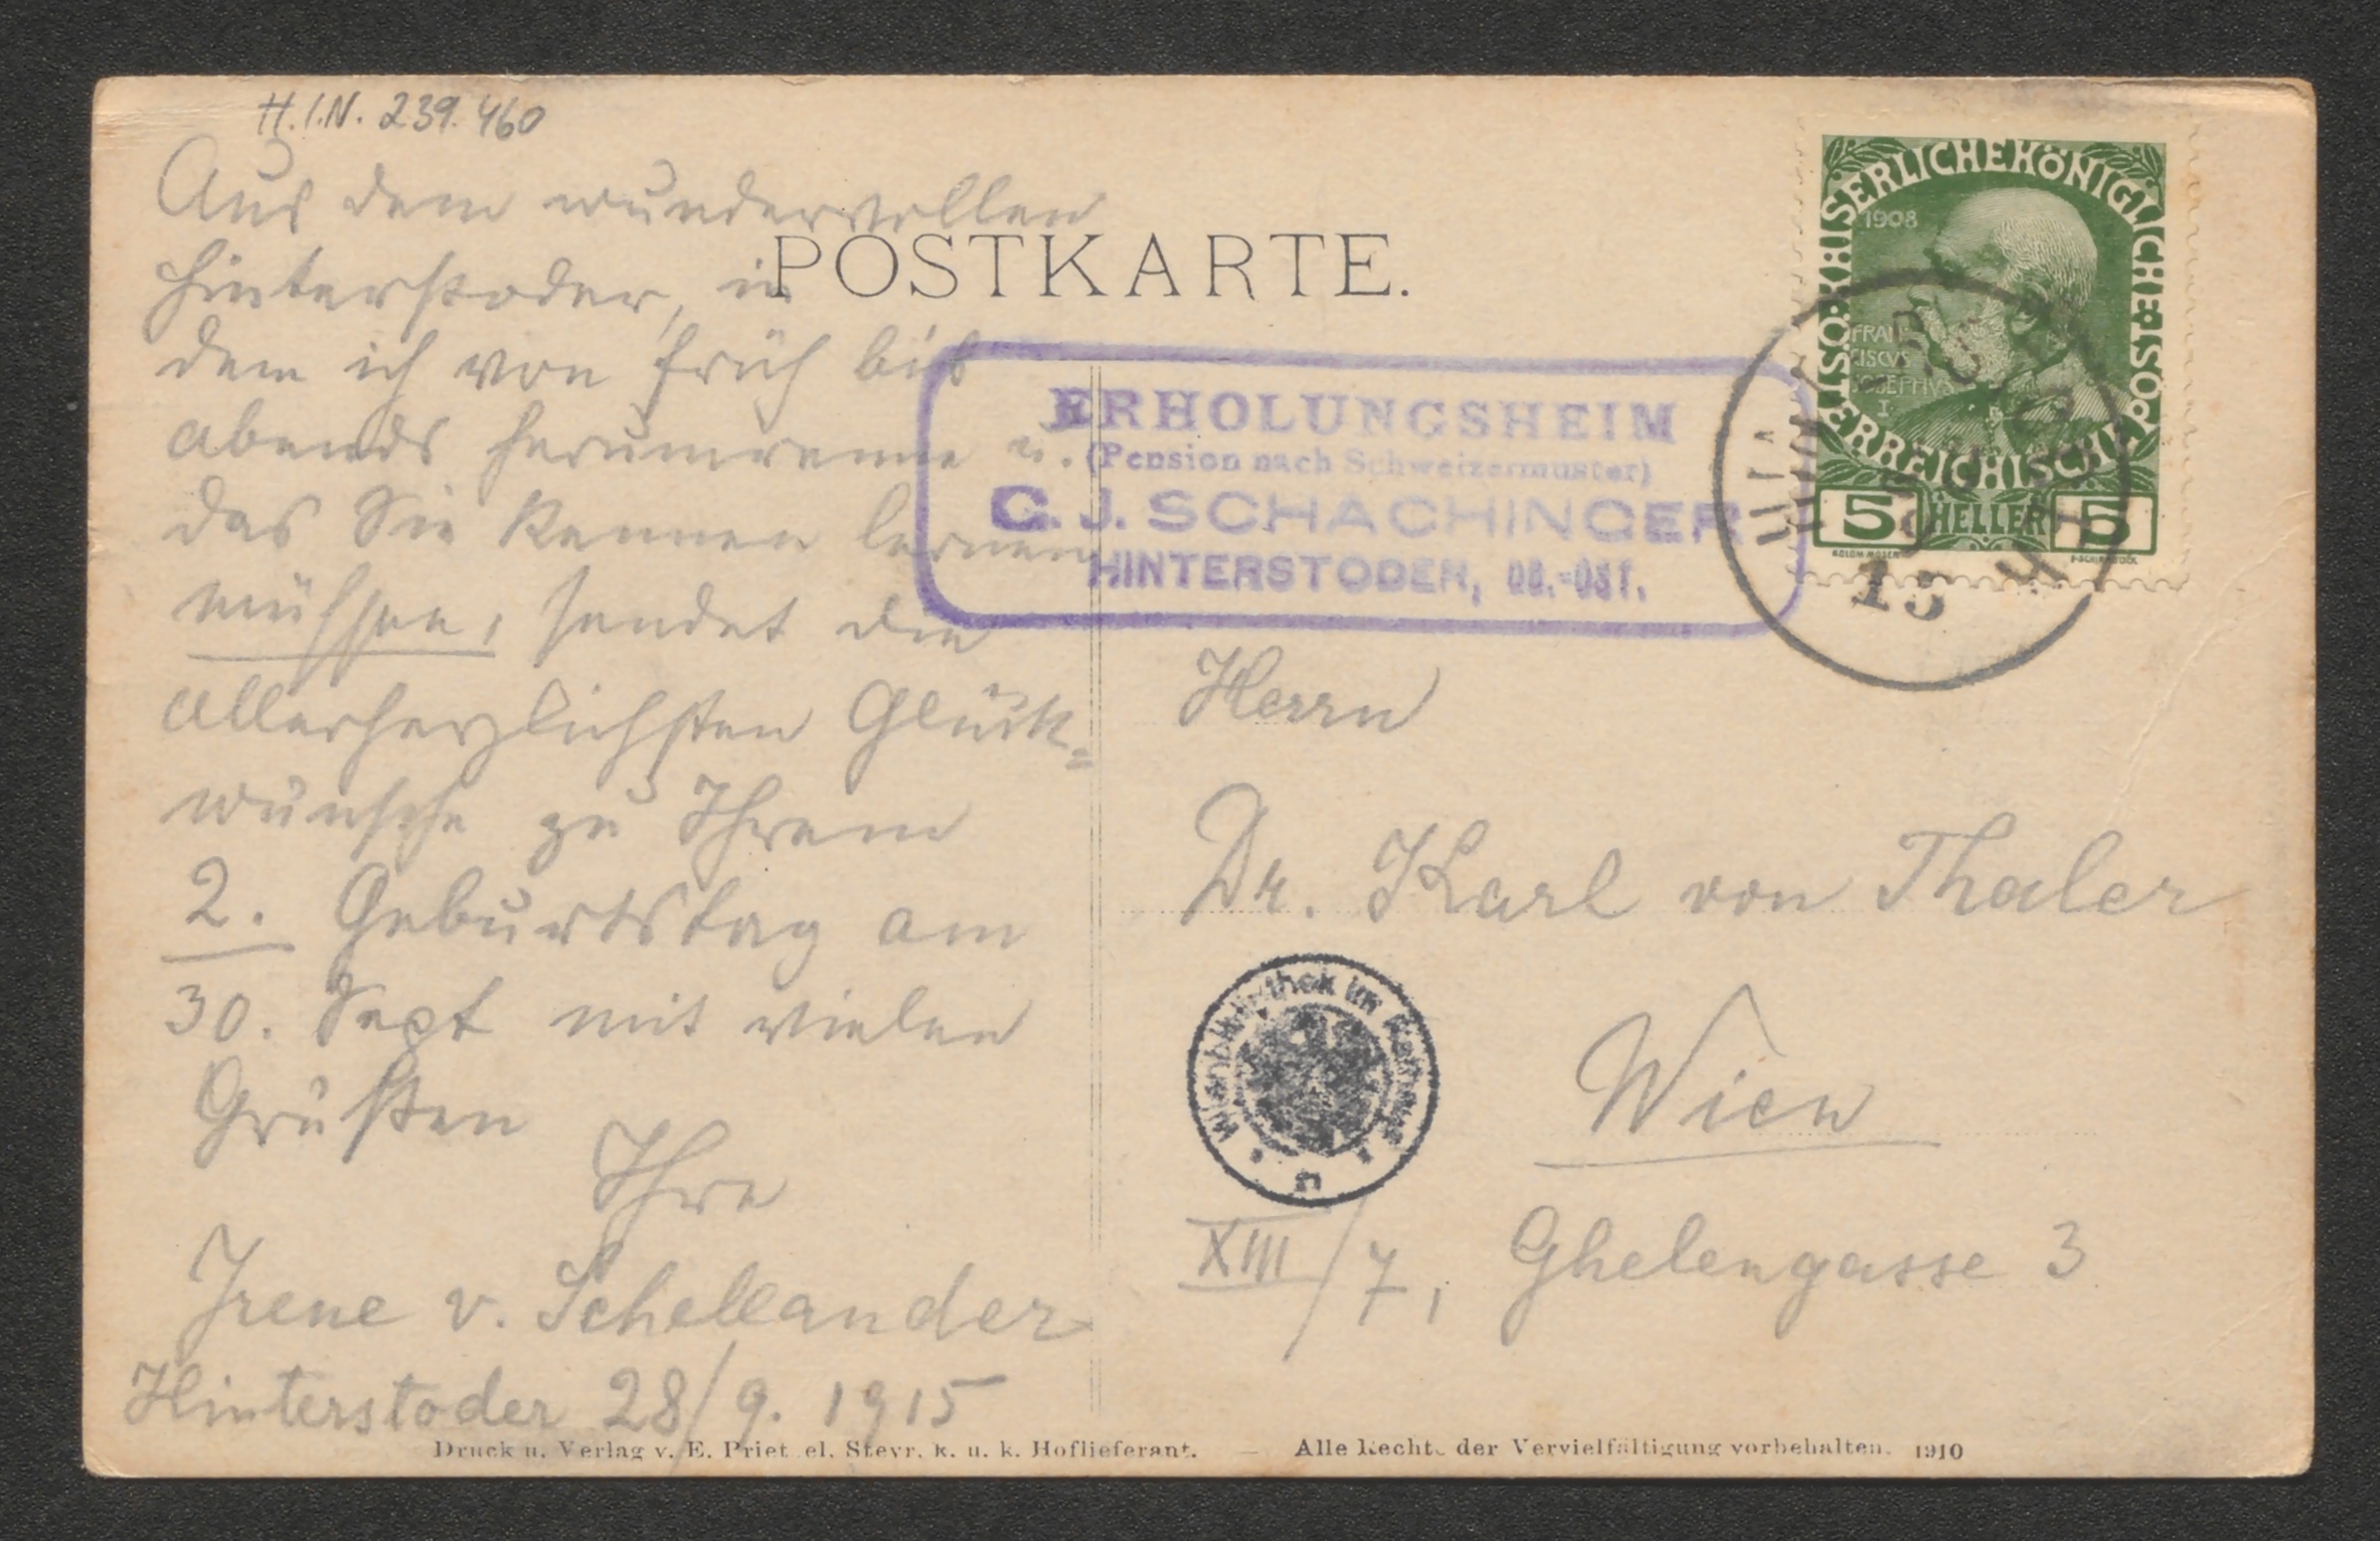 H.I.N. 239.460
Aus dem wundervollen
Hinterstoder, in
dem ich von früh bis
abends herumrenne u.
das Sie kennen lernen
müssen, sendet die
allerherzlichsten Glück-
wünsche zu Ihrem
2. Geburtstag am
30. Sept mit vielen
Grüßen
Ihre
Irene v. Schellander
Hinterstoder 28/9. 1915
POSTKARTE.
ERHOLUNGSHEIM
(Pension nach Schweizermuster)
C. J. SCHACHINGER
HINTERSTODER, OB.-ÖST.
KAISERLICHE KÖNIGLICHE ÖSTERREICHISCHE POST
1908
FRAN
CISCVS
IOSEPHVS
I.
5 HELLER 5
KOLOM. MOSER
15
Herrn
Dr. Karl von Thaler
Wien
XIII/7, Ghelengasse 3
Wienbibliothek im Rathaus
Druck u. Verlag v. E. Prietzel, Steyr, k. u. k. Hoflieferant. — Alle Rechte der Vervielfältigung vorbehalten. 1910